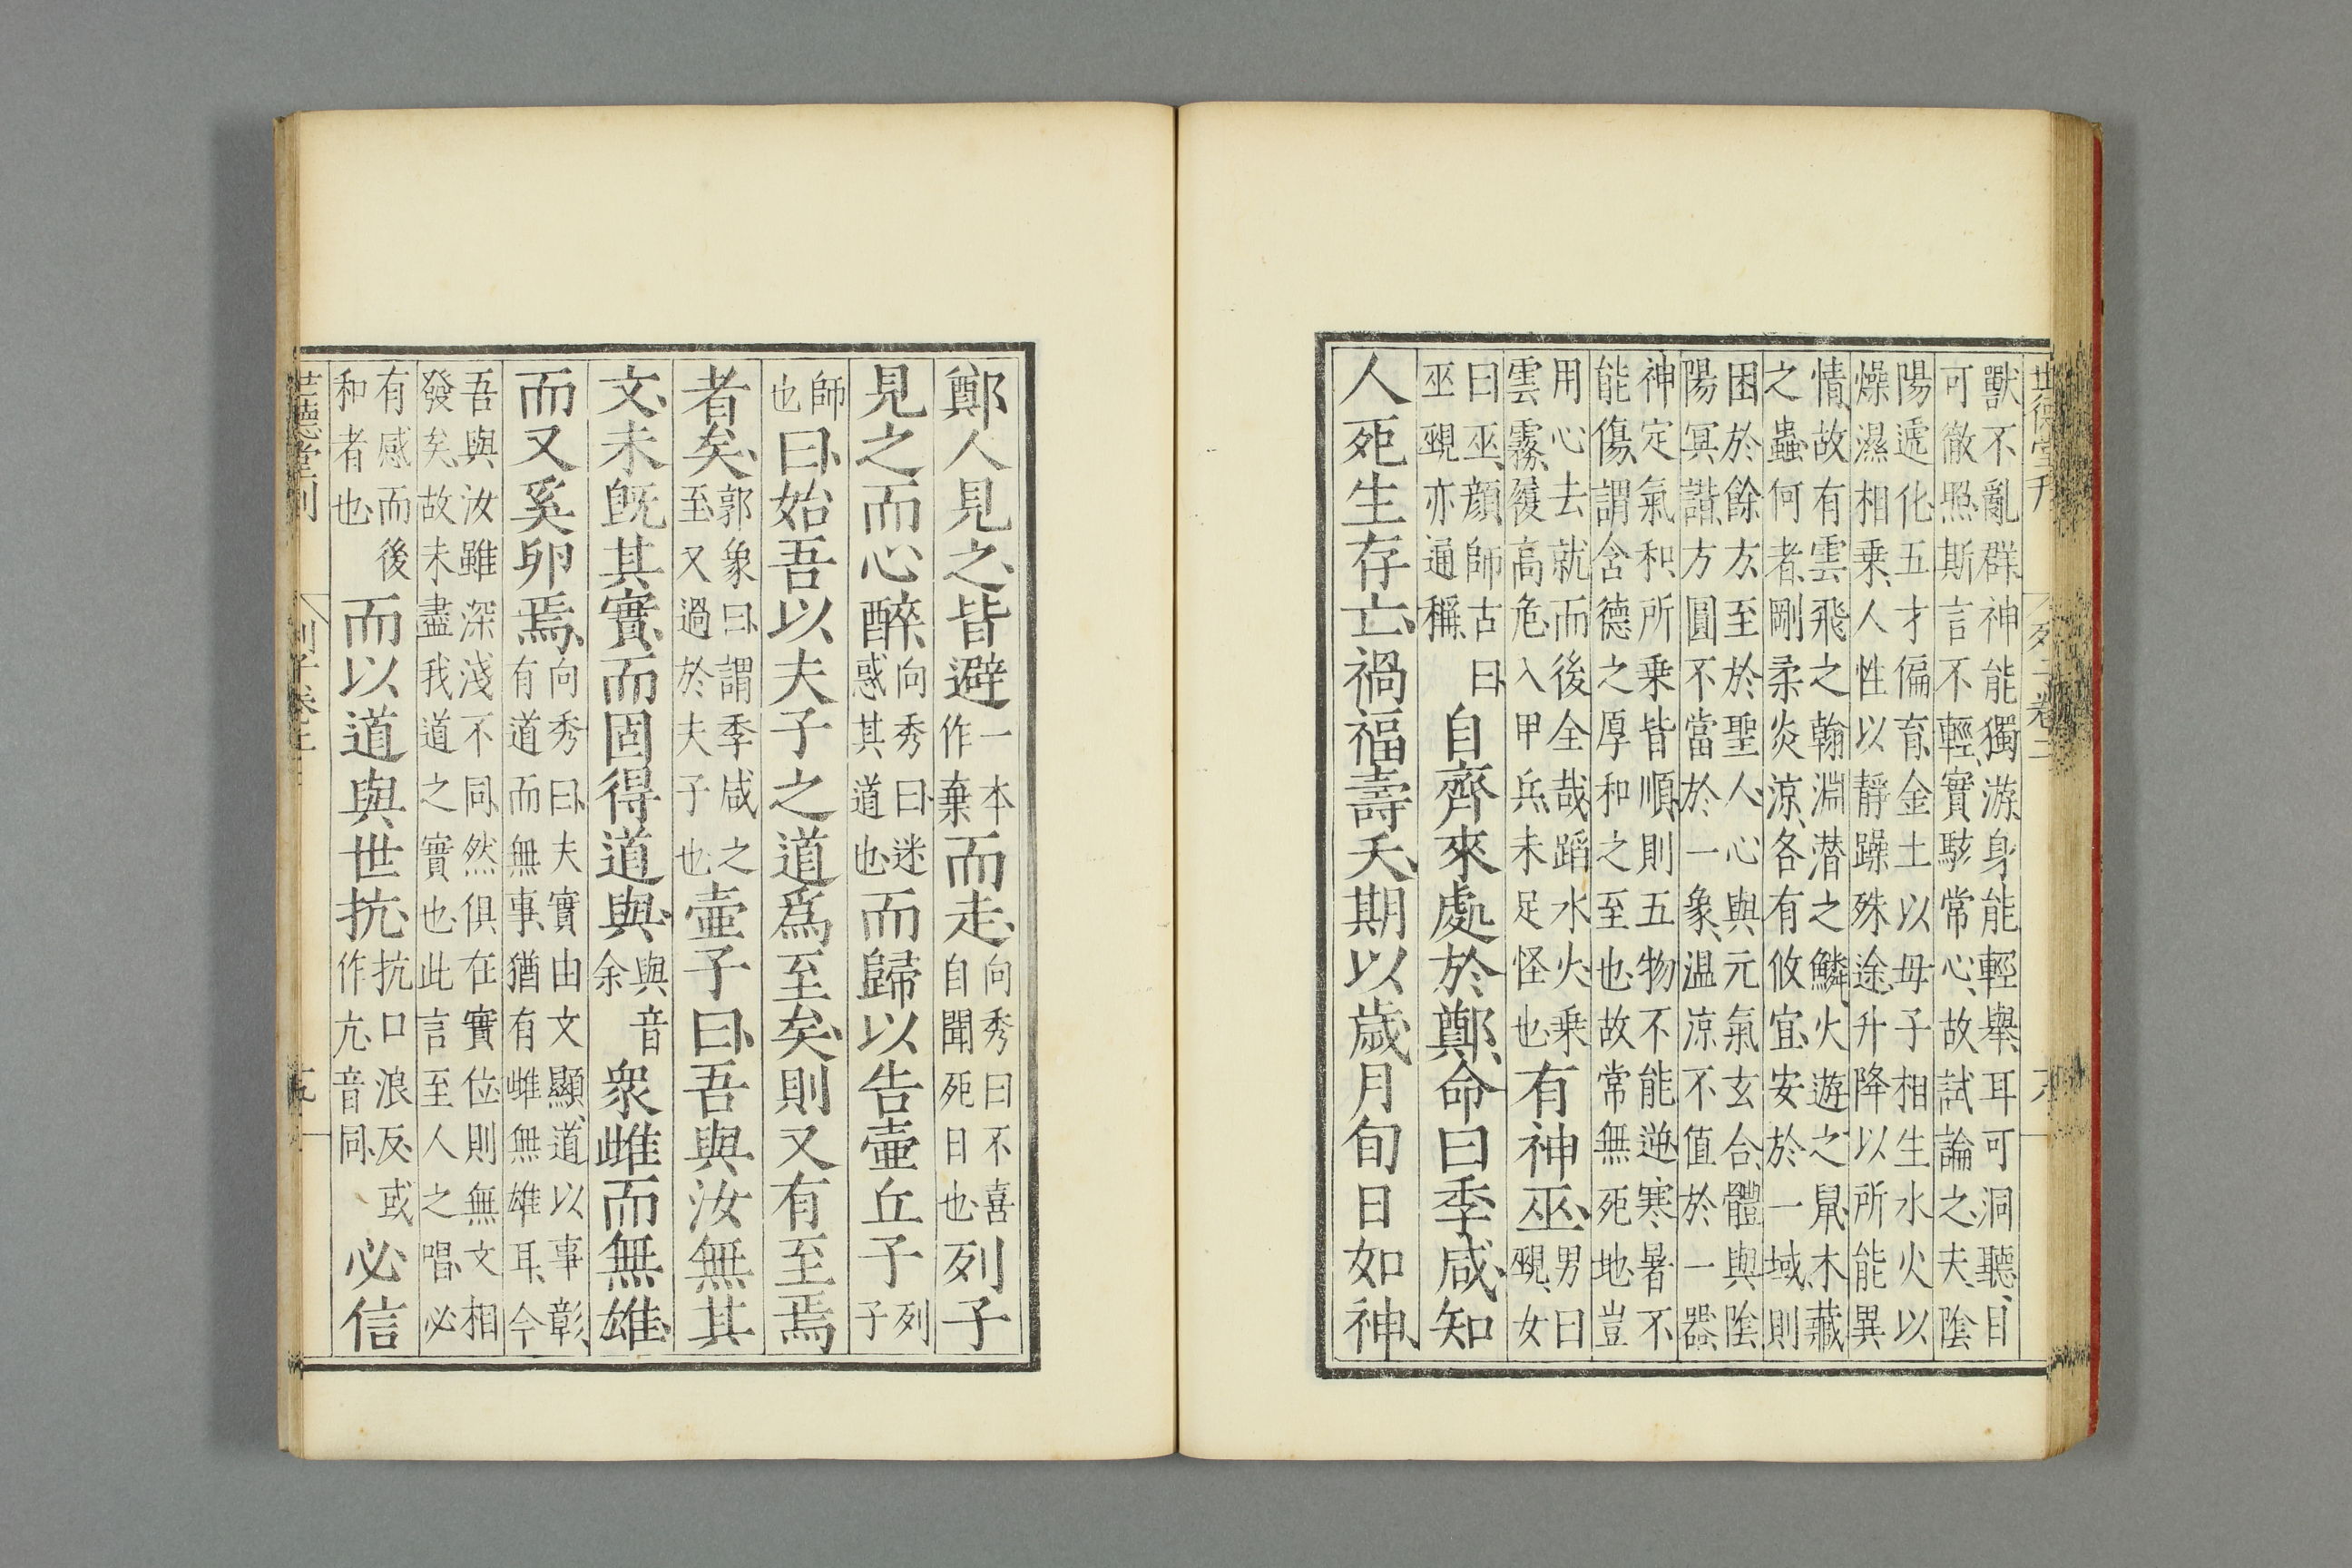 世德堂刊 列子卷二
獸不亂群神能獨游身能輕舉耳可洞聽目
可徹照斯言不輕實駭常心故試論之夫陰
陽遞化五才偏育金土以母子相生水火以
燥濕相乘人性以靜躁殊途升降以所能異
情故有雲飛之翰淵潛之鱗火遊之鼠木藏
之蟲何者剛柔炎涼各有攸宜安於一域則
困於餘方至於聖人心與元氣玄合體與陰
陽冥諧方圓不當於一象溫涼不值於一器
神定氣和所乗皆順則五物不能逆寒暑不
能傷謂含德之厚和之至也故常無死地豈
用心去就而後全哉蹈水火乗
雲霧履高危入甲兵未足怪也
有神巫
男曰
覡女
曰巫顏師古曰
巫覡亦通稱
自齊來處於鄭命曰季咸知
人死生存亡禍福壽夭期以歲月旬日如神
鄭人見之皆避
一本
作棄
而走
向秀曰不喜
自聞死日也
列子
見之而心醉
向秀曰迷
惑其道也
而歸以告壺丘子
列
子
師
也
曰始吾以夫子之道爲至矣則又有至焉
者矣
郭象曰謂季咸之
至又過於夫子也
壺子曰吾與汝無其
文未旣其實而固得道與
與音
余
衆雌而無雄
而又奚卵焉
向秀曰夫實由文顯道以事彰
有道而無事猶有雌無雄耳今
吾與汝雖深淺不同然俱在實位則無文相
發矣故未盡我道之實也此言至人之唱必
有感而後
和者也
而以道與世抗
抗口浪反或
作亢音同
必信
世德堂刊 列子卷二